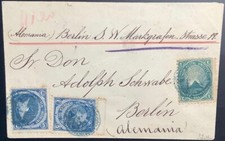 Alemania / Berlin S. W. Markgrafen Strasse 19.
Sr Don
Adolph Schwabe
Berlín
(Alemania)